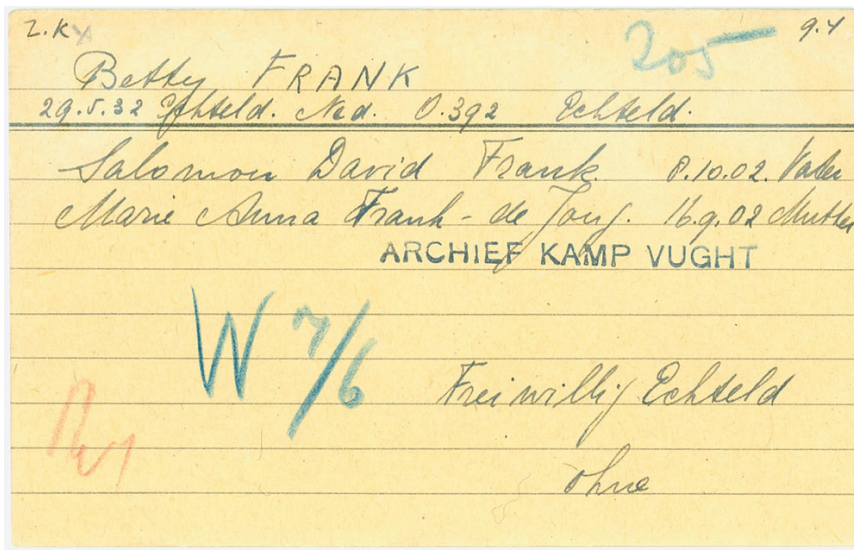 Z.K 205 9.4
Betty FRANK
29.5.32 Echteld. Ned. O.392 Echteld.
Salomon David Frank 8.10.02. Vater
Marie Anna Frank - de Jong. 16.9.02 Mutter
ARCHIEF KAMP VUGHT
W 7/6
Freiwillig Echteld
ohne